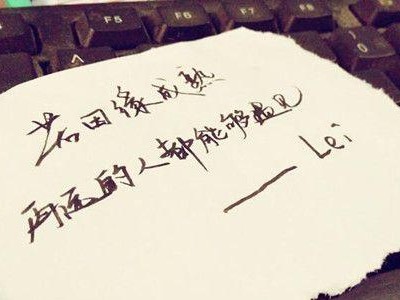 F5
F6
F7
F8
若因缘成熟
再远的人都能够遇见
—— Lei